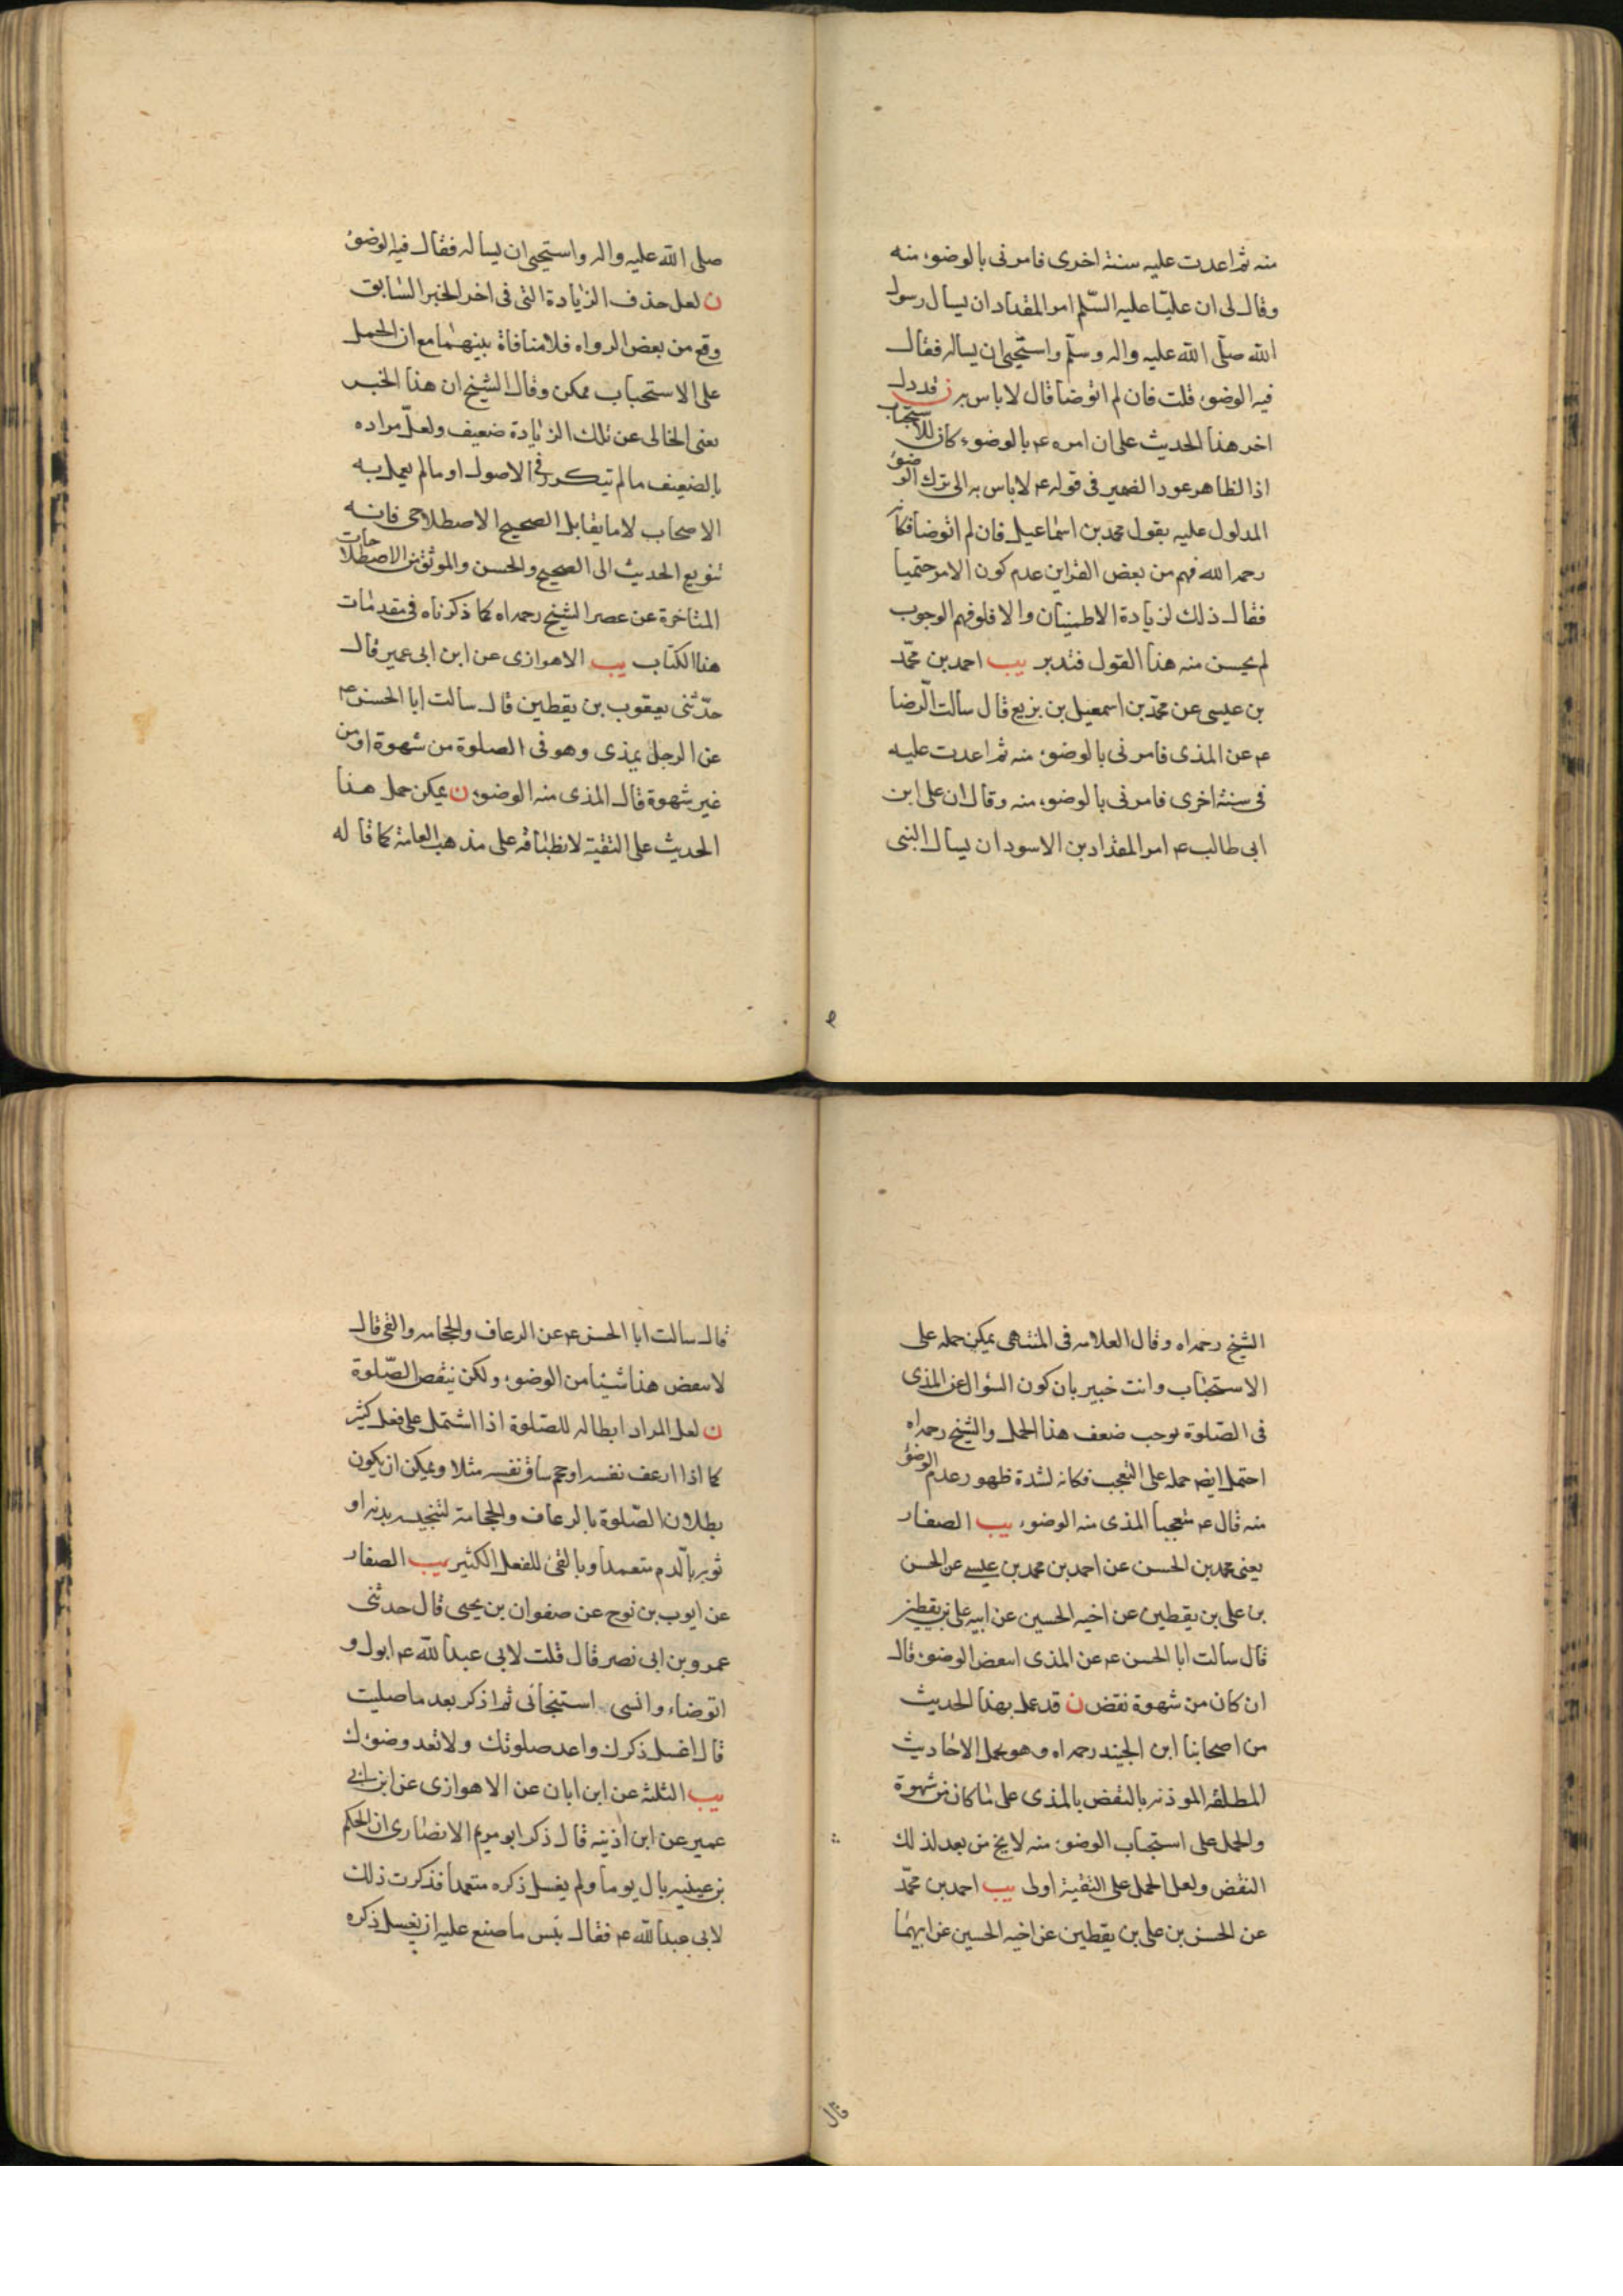 منه ثم اعدت عليه سنة اخرى فامرنى بالوضوء منه
وقال لى ان عليا عليه السلم امر المقداد ان يسال رسول
الله صلى الله عليه واله وسلم واستحيى ان يساله فقال
فيه الوضوء قلت فان لم اتوضا قال لا باس به ن قد دل
اخر هذا الحديث على ان امره ع بالوضوء كان للاستحباب
اذ الظاهر عود الضمير فى قوله ع لا باس به الى ترك الوضوء
المدلول عليه بقول محمد بن اسماعيل فان لم اتوضا فكانه
رحمه الله فهم من بعض القراين عدم كون الامر حتميا
فقال ذلك لزيادة الاطمينان والا فلو فهم الوجوب
لم يحسن منه هذا القول فتدبر يب احمد بن محمد
بن عيسى عن محمد بن اسمعيل بن بزيع قال سالت الرضا
ع عن المذى فامرنى بالوضوء منه ثم اعدت عليه
فى سنة اخرى فامرنى بالوضوء منه وقال ان على ابن
ابى طالب ع امر المقداد بن الاسود ان يسال النبى
صلى الله عليه واله واستحيى ان يساله فقال فيه الوضوء
ن لعل حذف الزيادة التى فى اخر الخبر السابق
وقع من بعض الرواه فلا منافاة بينهما مع ان الحمل
على الاستحباب ممكن وقال الشيخ ان هذا الخبر
يعنى الخالى عن تلك الزيادة ضعيف ولعل مراده
بالضعيف ما لم يتكرر فى الاصول او ما لم يعمل به
الاصحاب لا ما يقابل الصحيح الاصطلاحى فانه
تنويع الحديث الى الصحيح والحسن والموثق من الاصطلاحات
المتاخرة عن عصر الشيخ رحمه اه كما ذكرناه فى مقدمات
هذا الكتاب يب الاهوازى عن ابن ابى عمير قال
حدثنى يعقوب بن يقطين قال سالت ابا الحسن ع
عن الرجل يمذى وهو فى الصلوة من شهوة او من
غير شهوة قال المذى منه الوضوء ن يمكن حمل هذا
الحديث على التقية لانطباقه على مذهب العامة كما قاله
الشيخ رحمه اه وقال العلامه فى المنتهى يمكن حمله على
الاستحباب وانت خبير بان كون السؤال عن المذى
فى الصلوة يوجب ضعف هذا الحمل والشيخ رحمه اه
احتمل ايض حمله على التعجب فكانه لشدة ظهور عدم الوضوء
منه قال ع متعجبا المذى منه الوضوء يب الصفار
يعنى محمد بن الحسن عن احمد بن محمد بن عيسى عن الحسن
بن على بن يقطين عن اخيه الحسين عن ابيه على بن يقطين
قال سالت ابا الحسن ع عن المذى اينقض الوضوء قال
ان كان من شهوة نقض ن قد عمل بهذا الحديث
من اصحابنا ابن الجنيد رحمه اه وهو يحمل الاحاديث
المطلقة الموذنه بالنقض بالمذى على ما كان من شهوة
والحمل على استحباب الوضوء منه لا يخ من بعد لذلك
النقض ولعل الحمل على التقية اولى يب احمد بن محمد
عن الحسن بن على بن يقطين عن اخيه الحسين عن ابيهما
قال
قال سالت ابا الحسن ع عن الرعاف والحجامه والقى قال
لا ينقض هذا شيئا من الوضوء ولكن ينقض الصلوة
ن لعل المراد ابطاله للصلوة اذا اشتمل على فعل كثير
كما اذا ارعف نفسه او حجم ساق نفسه مثلا ويمكن ان يكون
بطلان الصلوة بالرعاف والحجامة لتنجيسه بدنه او
ثوبه بالدم متعمدا وبالقئ للفعل الكثير يب الصفار
عن ايوب بن نوح عن صفوان بن يحيى قال حدثنى
عمرو بن ابى نصر قال قلت لابى عبد الله ع ابول و
اتوضاء وانسى استنجائى ثم اذكر بعد ما صليت
قال اغسل ذكرك واعد صلوتك ولا تعد وضوءك
يب الثلثة عن ابن ابان عن الاهوازى عن ابن ابى
عمير عن ابن اذينه قال ذكر ابو مريم الانصارى ان الحكم
بن عيينه بال يوما ولم يغسل ذكره متعمدا فذكرت ذلك
لابى عبد الله ع فقال بئس ما صنع عليه ان يغسل ذكره